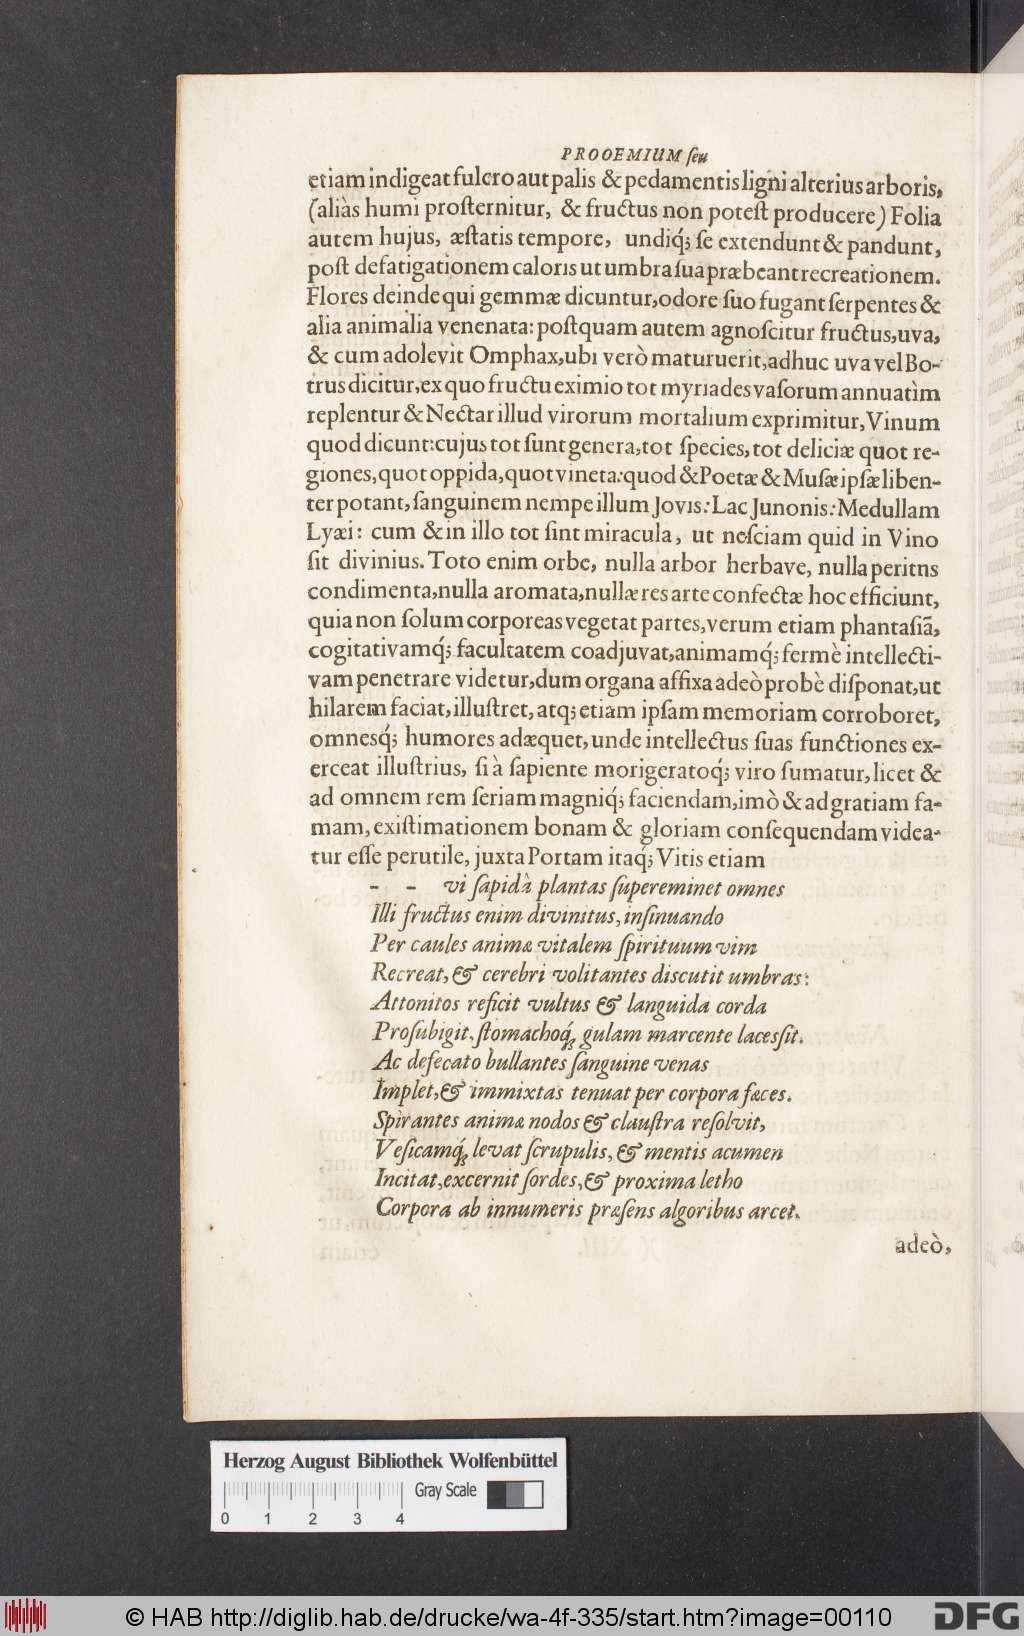 PROOEMIUM ſeu
etiam indigeat fulcro aut palis & pedamentis ligni alterius arboris,
(aliàs humi proſternitur, & fructus non poteſt producere) Folia
autem hujus, æſtatis tempore, undiq́; ſe extendunt & pandunt,
poſt defatigationem caloris ut umbra ſua præbeant recreationem.
Flores deinde qui gemmæ dicuntur, odore ſuo fugant ſerpentes &
alia animalia venenata: poſtquam autem agnoſcitur fructus, uva,
& cum adolevit Omphax, ubi verò maturuerit, adhuc uva vel Bo-
trus dicitur, ex quo fructu eximio tot myriades vaſorum annuatìm
replentur & Nectar illud virorum mortalium exprimitur, Vinum
quod dicunt: cujus tot ſunt genera, tot ſpecies, tot deliciæ quot re-
giones, quot oppida, quot vineta: quod & Poetæ & Muſæ ipſæ liben-
ter potant, ſanguinem nempe illum Jovis: Lac Junonis: Medullam
Lyæi: cum & in illo tot ſint miracula, ut neſciam quid in Vino
ſit divinius. Toto enim orbe, nulla arbor herbave, nulla peritns
condimenta, nulla aromata, nullæ res arte confectæ hoc efficiunt,
quia non ſolum corporeas vegetat partes, verum etiam phantaſiã,
cogitativamq́; facultatem coadjuvat, animamq́; fermè intellecti-
vam penetrare videtur, dum organa affixa adeò probè diſponat, ut
hilarem faciat, illuſtret, atq; etiam ipſam memoriam corroboret,
omnesq́; humores adæquet, unde intellectus ſuas functiones ex-
erceat illuſtrius, ſi à ſapiente morigeratoq́; viro ſumatur, licet &
ad omnem rem ſeriam magniq́; faciendam, imò & ad gratiam fa-
mam, exiſtimationem bonam & gloriam conſequendam videa-
tur eſſe perutile, juxta Portam itaq́; Vitis etiam
- - vi ſapidâ plantas ſupereminet omnes
Illi fructus enim divinitus, inſinuando
Per caules animæ vitalem ſpirituum vim
Recreat, & cerebri volitantes discutit umbras:
Attonitos reficit vultus & languida corda
Proſubigit, ſtomachoq́; gulam marcente laceſſit.
Ac defecato bullantes ſanguine venas
Implet, & immixtas tenuat per corpora fæces.
Spirantes animæ nodos & clauſtra reſolvit,
Veſicamq́; levat ſcrupulis, & mentis acumen
Incitat, excernit ſordes, & proxima letho
Corpora ab innumeris præſens algoribus arcet.
adeò,
Herzog August Bibliothek Wolfenbüttel
Gray Scale
0 1 2 3 4
© HAB http://diglib.hab.de/drucke/wa-4f-335/start.htm?image=00110
DFG